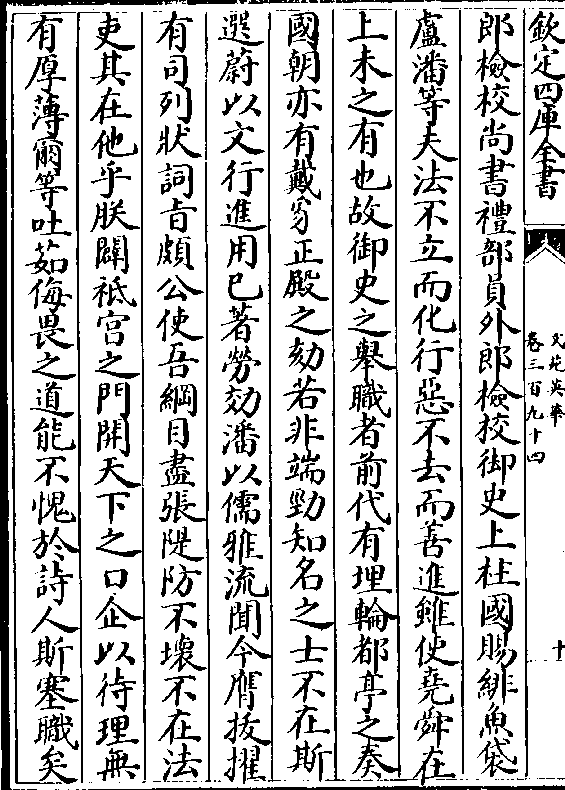 欽定四庫全書
文苑英華
卷三百九十四
十
郎檢校尚書禮部員外郎檢挍御史上柱國賜緋魚袋
盧潘等夫法不立而化行惡不去而善進雖使堯舜在
上未之有也故御史之舉職者前代有埋輪都亭之奏
國朝亦有戴豸正殿之劾若非端勁知名之士不在斯
選蔚以文行進用已著勞効潘以儒雅流聞今膺拔擢
有司列狀詞㫖頗公使吾綱目盡張隄防不壞不在法
吏其在他乎朕闢祗宫之門開天下之口企以待理無
有厚薄爾等吐茹侮畏之道能不愧於詩人斯塞職矣